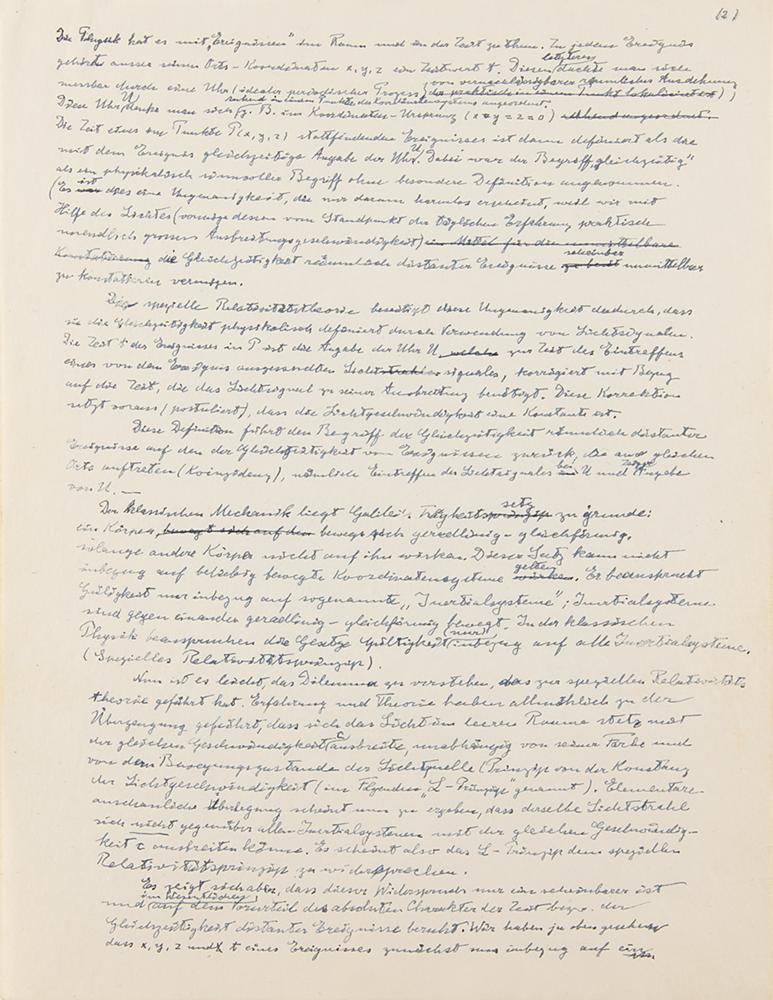 (2)
Die Physik hat es mit „Ereignissen" im Raum und in der Zeit zu thun. Zu jedem Ereignis
gehört ausser seinen Orts-Koordinaten x, y, z ein Zeitwert t. Diesen letzteren dachte man sich
messbar durch eine Uhr (idealer periodischer Prozess) von vernachlässigbarer räumlicher Ausdehnung
Diese Uhr U denke man sich ruhend in einem Punkte des Koordinatensystems angeordnet, z. B. im Koordinaten-Ursprung (x = y = z = 0)
Die Zeit eines am Punkte P(x, y, z) stattfindenden Ereignisses ist dann definiert als die
mit dem Ereignis gleichzeitige Angabe der Uhr U. Dabei war der Begriff „gleichzeitig"
als ein physikalisch sinnvoller Begriff ohne besondere Definition angenommen.
(Es ist dies eine Ungenauigkeit, die nur darum harmlos erscheint, weil wir mit
Hilfe des Lichtes (vermöge dessen vom Standpunkt der täglichen Erfahrung praktisch
unendlich grossen Ausbreitungsgeschwindigkeit) ein Mittel für die unmittelbare
Konstatierung die Gleichzeitigkeit räumlich distanter Ereignisse scheinbar unmittelbar
zu konstatieren vermögen.
Die spezielle Relativitätstheorie beseitigt diese Ungenauigkeit dadurch, dass
sie die Gleichzeitigkeit physikalisch definiert durch Verwendung von Lichtsignalen.
Die Zeit t des Ereignisses in P ist die Angabe der Uhr U welche zur Zeit des Eintreffens
eines von dem Ereignis ausgesandten Lichtsignales, korrigiert mit Bezug
auf die Zeit, die das Lichtsignal zu seiner Ausbreitung benötigt. Diese Korrektion
setzt voraus (postuliert), dass die Lichtgeschwindigkeit eine Konstante ist.
Diese Definition führt den Begriff der Gleichzeitigkeit räumlich distanter
Ereignisse auf den der Gleichzeitigkeit von Ereignissen zurück, die am gleichen
Orte auftreten (Koinzidenz), nämlich Eintreffen des Lichtsignales bei U und Angabe
von U. —
Der klassischen Mechanik liegt Galilei's Trägheitssatz zu grunde:
ein Körper bewegt sich auf den bewegt sich geradlinig-gleichförmig,
solange andere Körper nicht auf ihn wirken. Dieser Satz kann nicht
inbezug auf beliebig bewegte Koordinatensysteme gelten wirken. Er beansprucht
Gültigkeit nur inbezug auf sogenannte „Inertialsysteme"; Inertialsysteme
sind gegen einander geradlinig-gleichförmig bewegt. In der klassischen
Physik beanspruchen die Gesetze Gültigkeit (nur) inbezug auf alle Inertialsysteme.
(Spezielles Relativitätsprinzip).
Nun ist es leicht, das Dilemma zu verstehen, das zur speziellen Relativitäts-
theorie geführt hat. Erfahrung und Theorie haben allmählich zu der
Überzeugung geführt, dass sich das Licht im leeren Raume stets mit
der gleichen Geschwindigkeit c ausbreite, unabhängig von seiner Farbe und
von dem Bewegungszustande der Lichtquelle (Prinzip von der Konstanz
der Lichtgeschwindigkeit (im Folgenden „L-Prinzip" genannt). Elementare
anschauliche Überlegung scheint nun zu ergeben, dass derselbe Lichtstrahl
sich nicht gegenüber allen Inertialsystemen mit der gleichen Geschwindig-
keit c ausbreiten könne. Es scheint also das L-Prinzip dem speziellen
Relativitätsprinzip zu widersprechen.
Es zeigt sich aber, dass dieser Widerspruch nur ein scheinbarer ist
und im Wesentlichen auf dem Vorurteil des absoluten Charakter der Zeit bezw. der
Gleichzeitigkeit distanter Ereignisse beruht. Wir haben ja oben gesehen
dass x, y, z und t eines Ereignisses zunächst nur inbezug auf ein